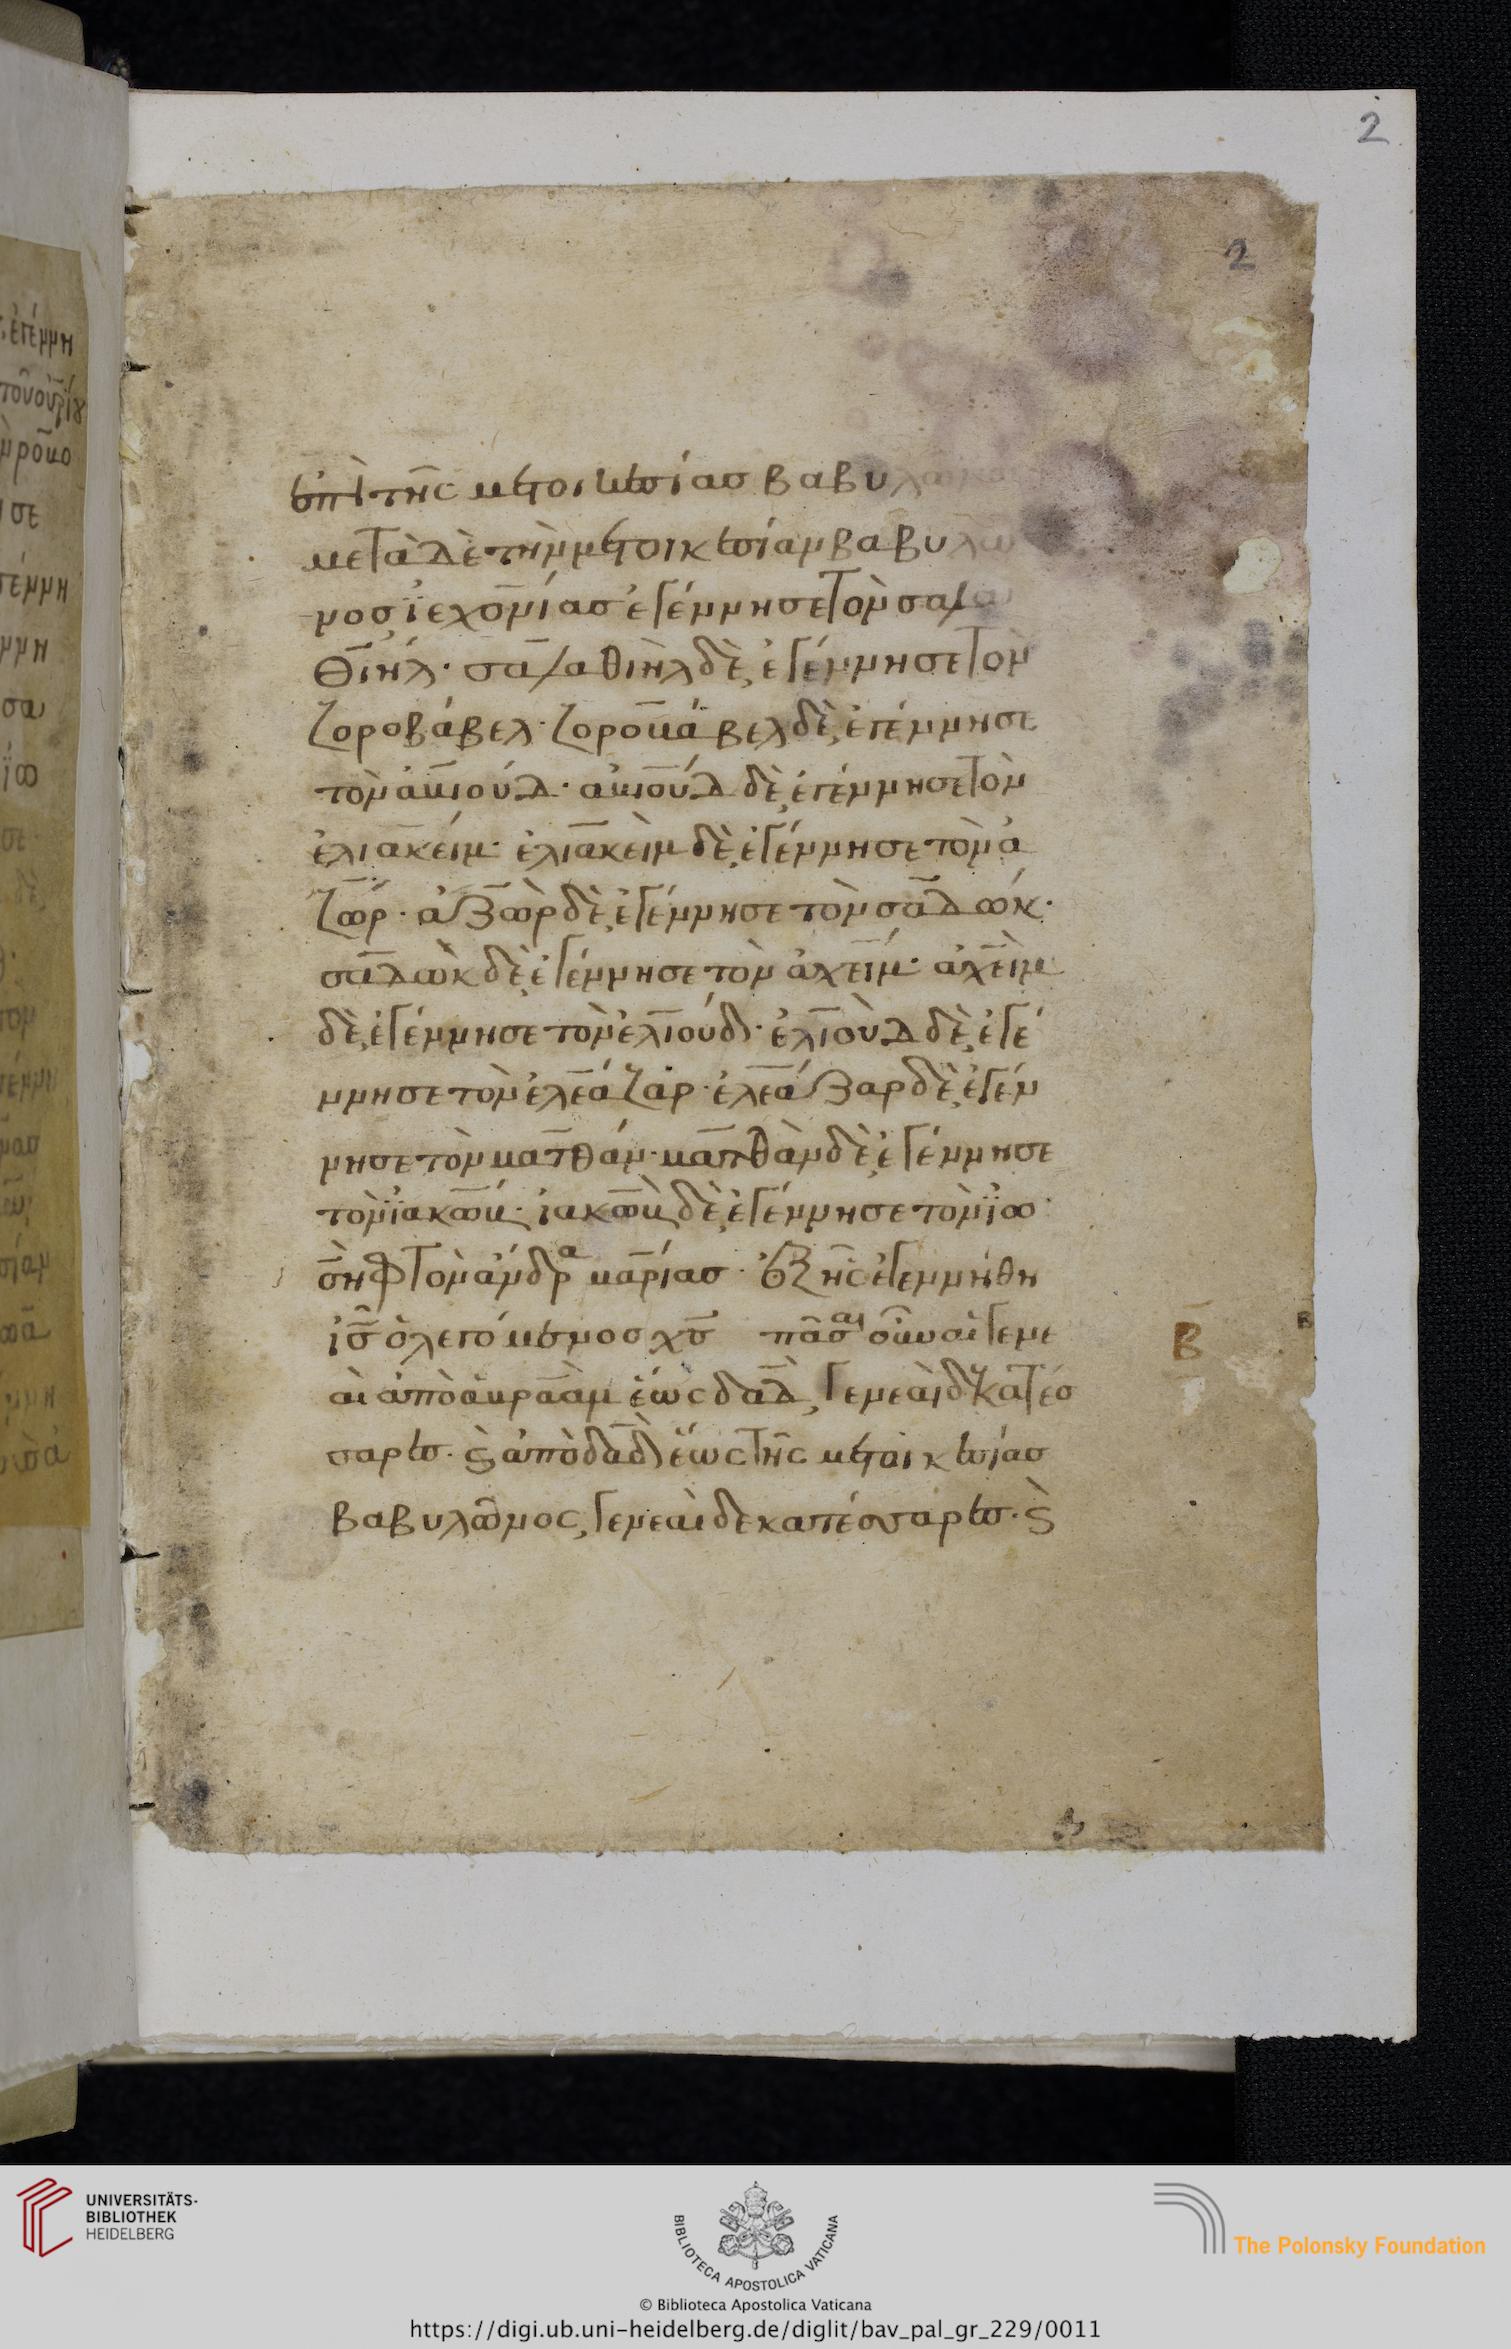 2
2
ἐπὶ τῆς μετοικεσίας βαβυλῶνος
μετὰ δὲ τὴν μετοικεσίαν βαβυλῶ
νος ϊεχονίας ἐγέννησε τὸν σαλα
θιήλ· σαλαθιὴλ δὲ, ἐγέννησε τὸν
ζοροβάβελ· ζοροβάβελ δὲ, ἐγέννησε
τὸν ἀβιούδ· ἀβιούδ δὲ, ἐγέννησε τὸν
ἐλιακείμ· ἐλιακεὶμ δὲ, ἐγέννησε τὸν ἀ
ζώρ· ἀζὼρ δὲ, ἐγέννησε τὸν σαδώκ·
σαδὼκ δὲ, ἐγέννησε τὸν ἀχείμ· ἀχεὶμ
δὲ, ἐγέννησε τὸν ἐλιούδ· ἐλιοὺδ δὲ, ἐγέ
ννησε τὸν ἐλεάζαρ· ἐλεάζαρ δὲ, ἐγέν
νησε τὸν ματθάν· ματθὰν δὲ, ἐγέννησε
τὸν ϊακώβ· ἰακὼβ δὲ, ἐγέννησε τὸν ϊω
σὴφ τὸν ἄνδρα μαρίας· ἐξ ἧς ἐγεννήθη
ἰς̅ ὁ λεγόμενος χς̅ πᾶσαι οὖν αἱ γενε
αὶ ἀπὸ ἀβραὰμ ἕως δαδ̅, γενεαὶ δεκατέσ
σαρες. ϗ ἀπὸ δαδ̅ ἕως τῆς μετοικεσίας
βαβυλῶνος, γενεαὶ δεκατέσσαρες. ϗ
Β̅
Β
UNIVERSITÄTS-
BIBLIOTHEK
HEIDELBERG
BIBLIOTECA APOSTOLICA VATICANA
The Polonsky Foundation
© Biblioteca Apostolica Vaticana
https://digi.ub.uni-heidelberg.de/diglit/bav_pal_gr_229/0011